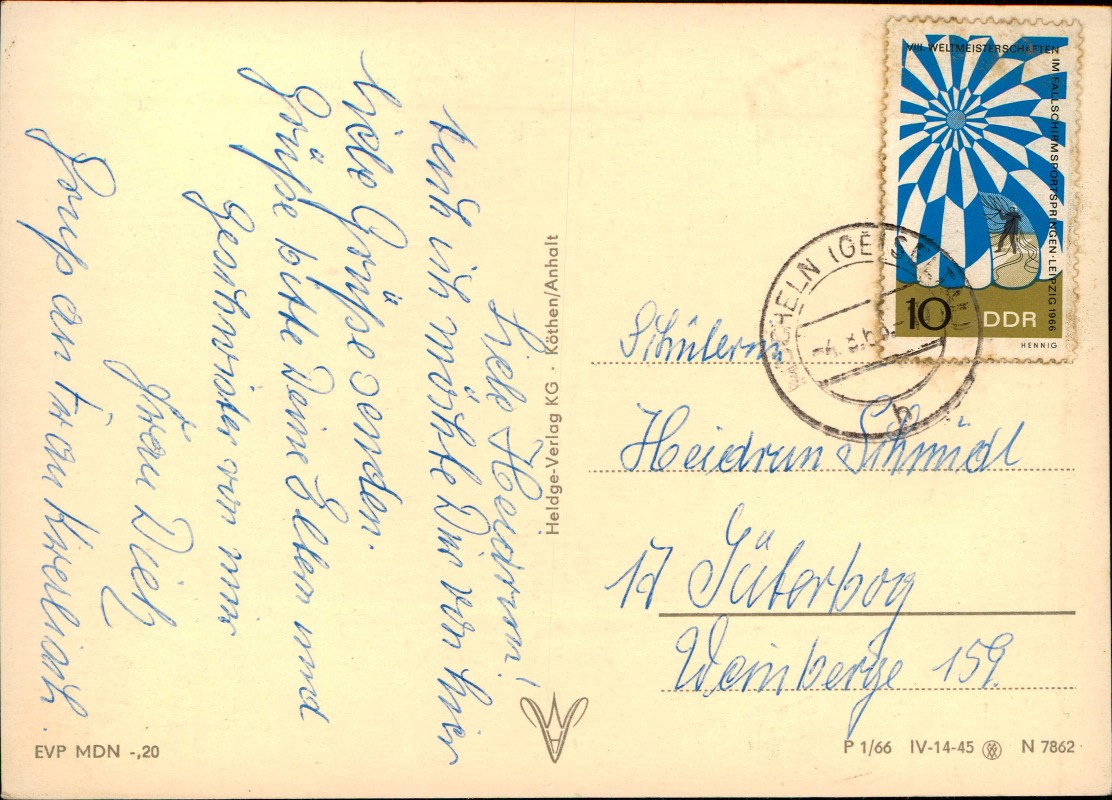 Liebe Heidrun!
Auch ich möchte Dir von hier
liebe Grüße senden.
Grüße bitte Deine Eltern und
Geschwister von mir
Frau Viel
Gruß an Frau
VIII. WELTMEISTERSCHAFTEN
IM FALLSCHIRMSPORTSPRINGEN · LEIPZIG 1966
10
DDR
HENNIG
MÜCHELN (GEISELTAL)
b
Schülerin
Heidrun Schmidl
17 Jüterbog
Weinberge 159.
Heldge-Verlag KG · Köthen/Anhalt
EVP MDN -,20
P 1/66 IV-14-45 N 7862